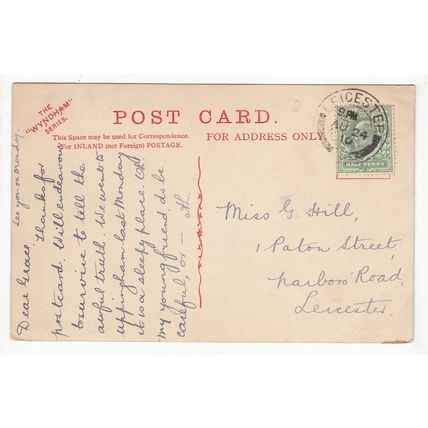 THE
"WYNDHAM"
SERIES.
POST CARD.
This Space may be used for Correspondence.
For INLAND (not Foreign) POSTAGE.
FOR ADDRESS ONLY.
LEICESTER
24
10
HALF PENNY
See you on Monday
Dear Grace, Thanks for
postcard. Will endeavour
to survive to tell the
awful truth. We went to
Uppingham last Monday
it is a sleepy place. Oh
my young friend, do be
careful, or —
Miss G. Hill,
1 Paton Street,
Narboro' Road,
Leicester.